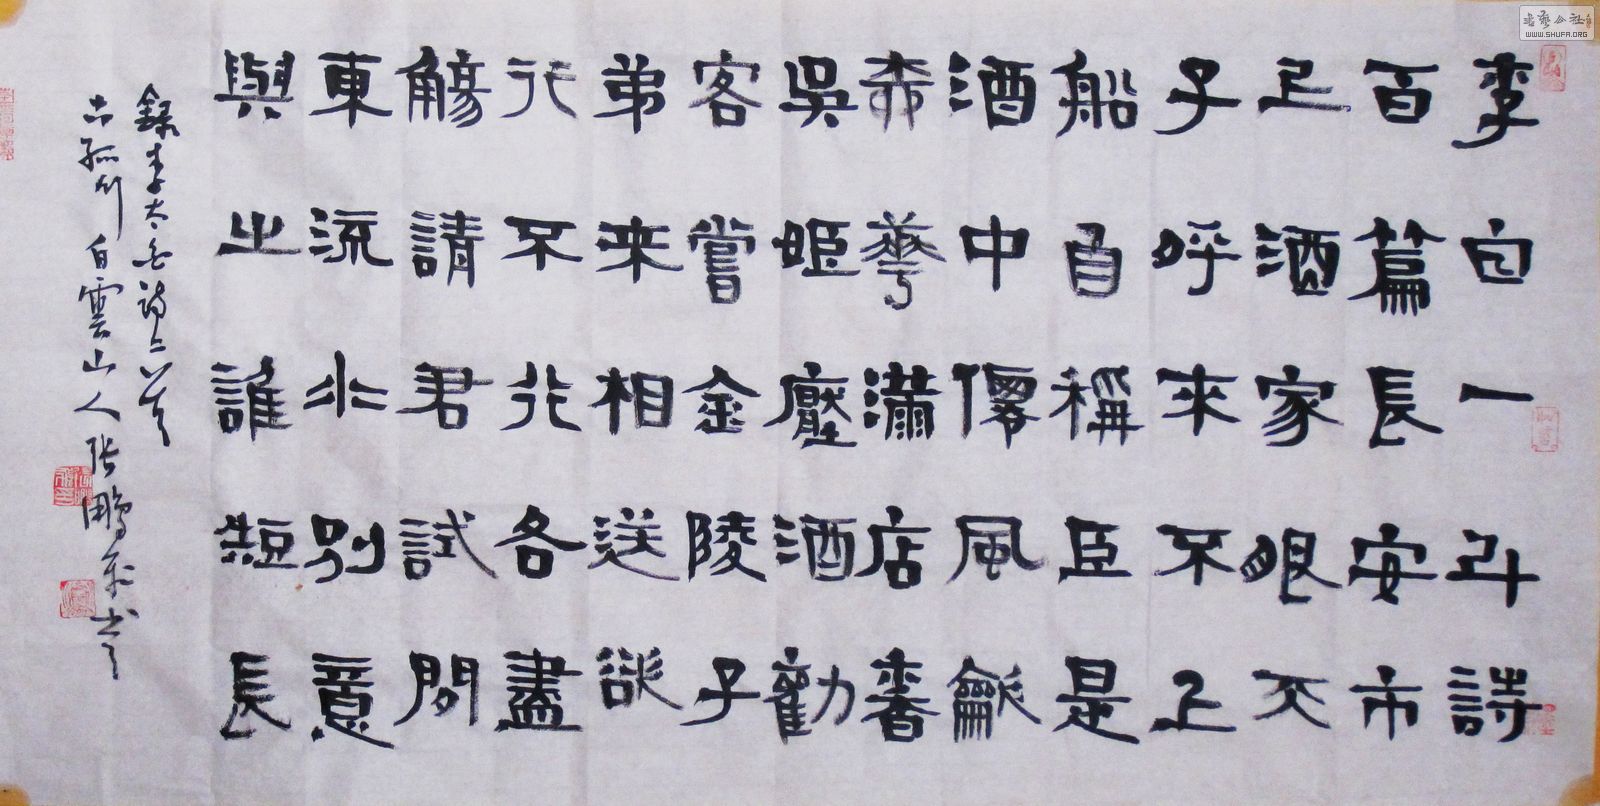 李白一斗詩
百篇長安市
上酒家眠天
子呼來不上
船自稱臣是
酒中僊風龡
桺華滿店香
吳姬壓酒勸
客嘗金陵子
弟来相送欲
行不行各盡
觴請君試問
東流水別意
與之誰短長
錄李太白詩二首
古孤竹白雲山人張鵬书
書藝公社
WWW.SHUFA.ORG